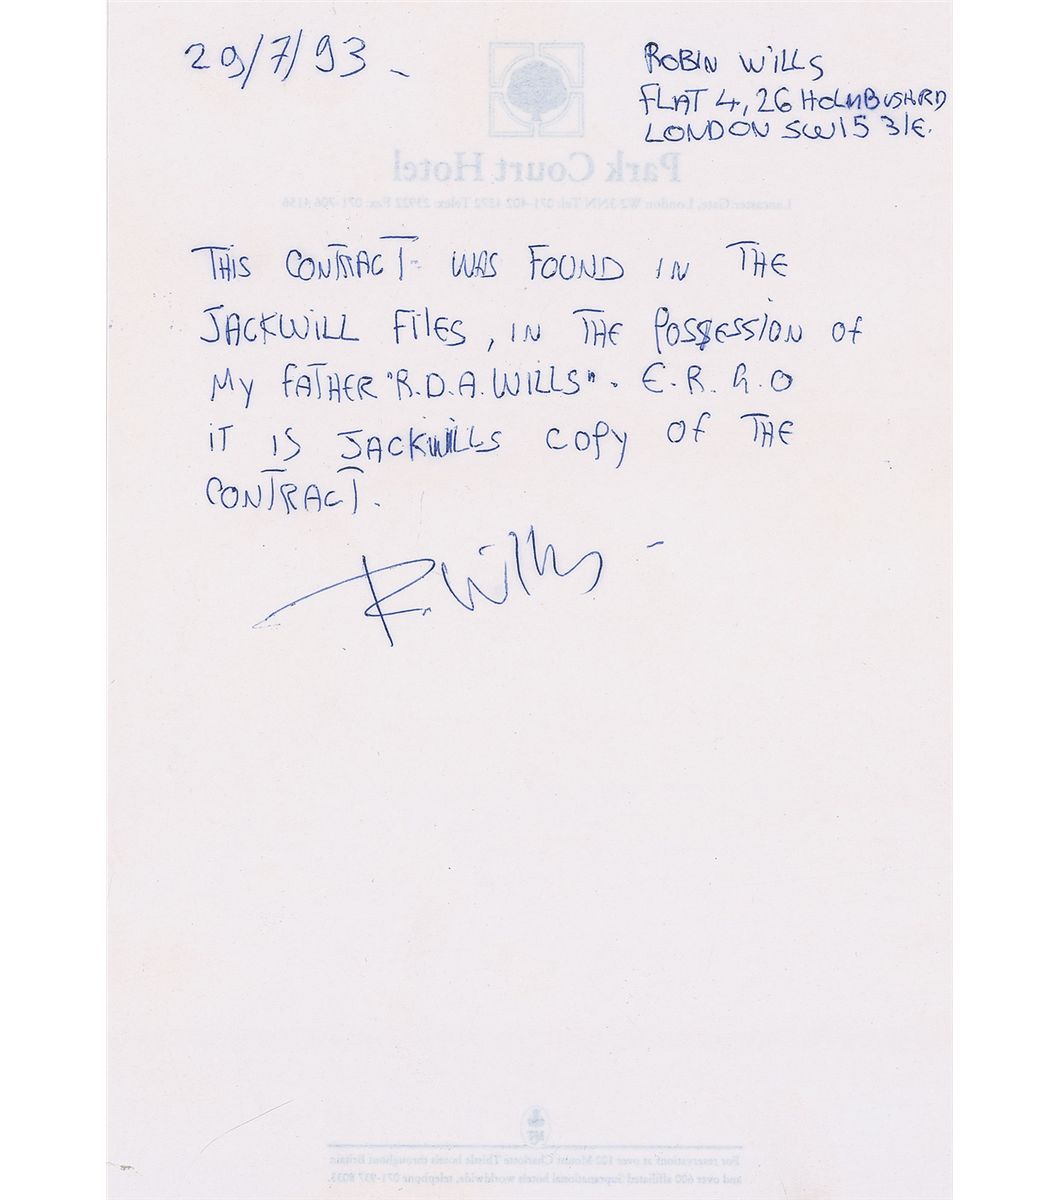 29/7/93
ROBIN WILLS
FLAT 4, 26 HOLMBUSH RD
LONDON SW15 3LE.
Park Court Hotel
Lancaster Gate, London W2 3NN Tel: 071-402 4272 Telex: 23922 Fax: 071-706 4156
THIS CONTRACT WAS FOUND IN THE
JACKWILL FILES, IN THE POSSESSION OF
MY FATHER "R.D.A. WILLS". E.R.G.O
IT IS JACKWILLS COPY OF THE
CONTRACT.
R. Wills
For reservations at over 100 Mount Charlotte Thistle hotels throughout Britain
and over 600 affiliated Supranational hotels worldwide, telephone 071-937 8033.